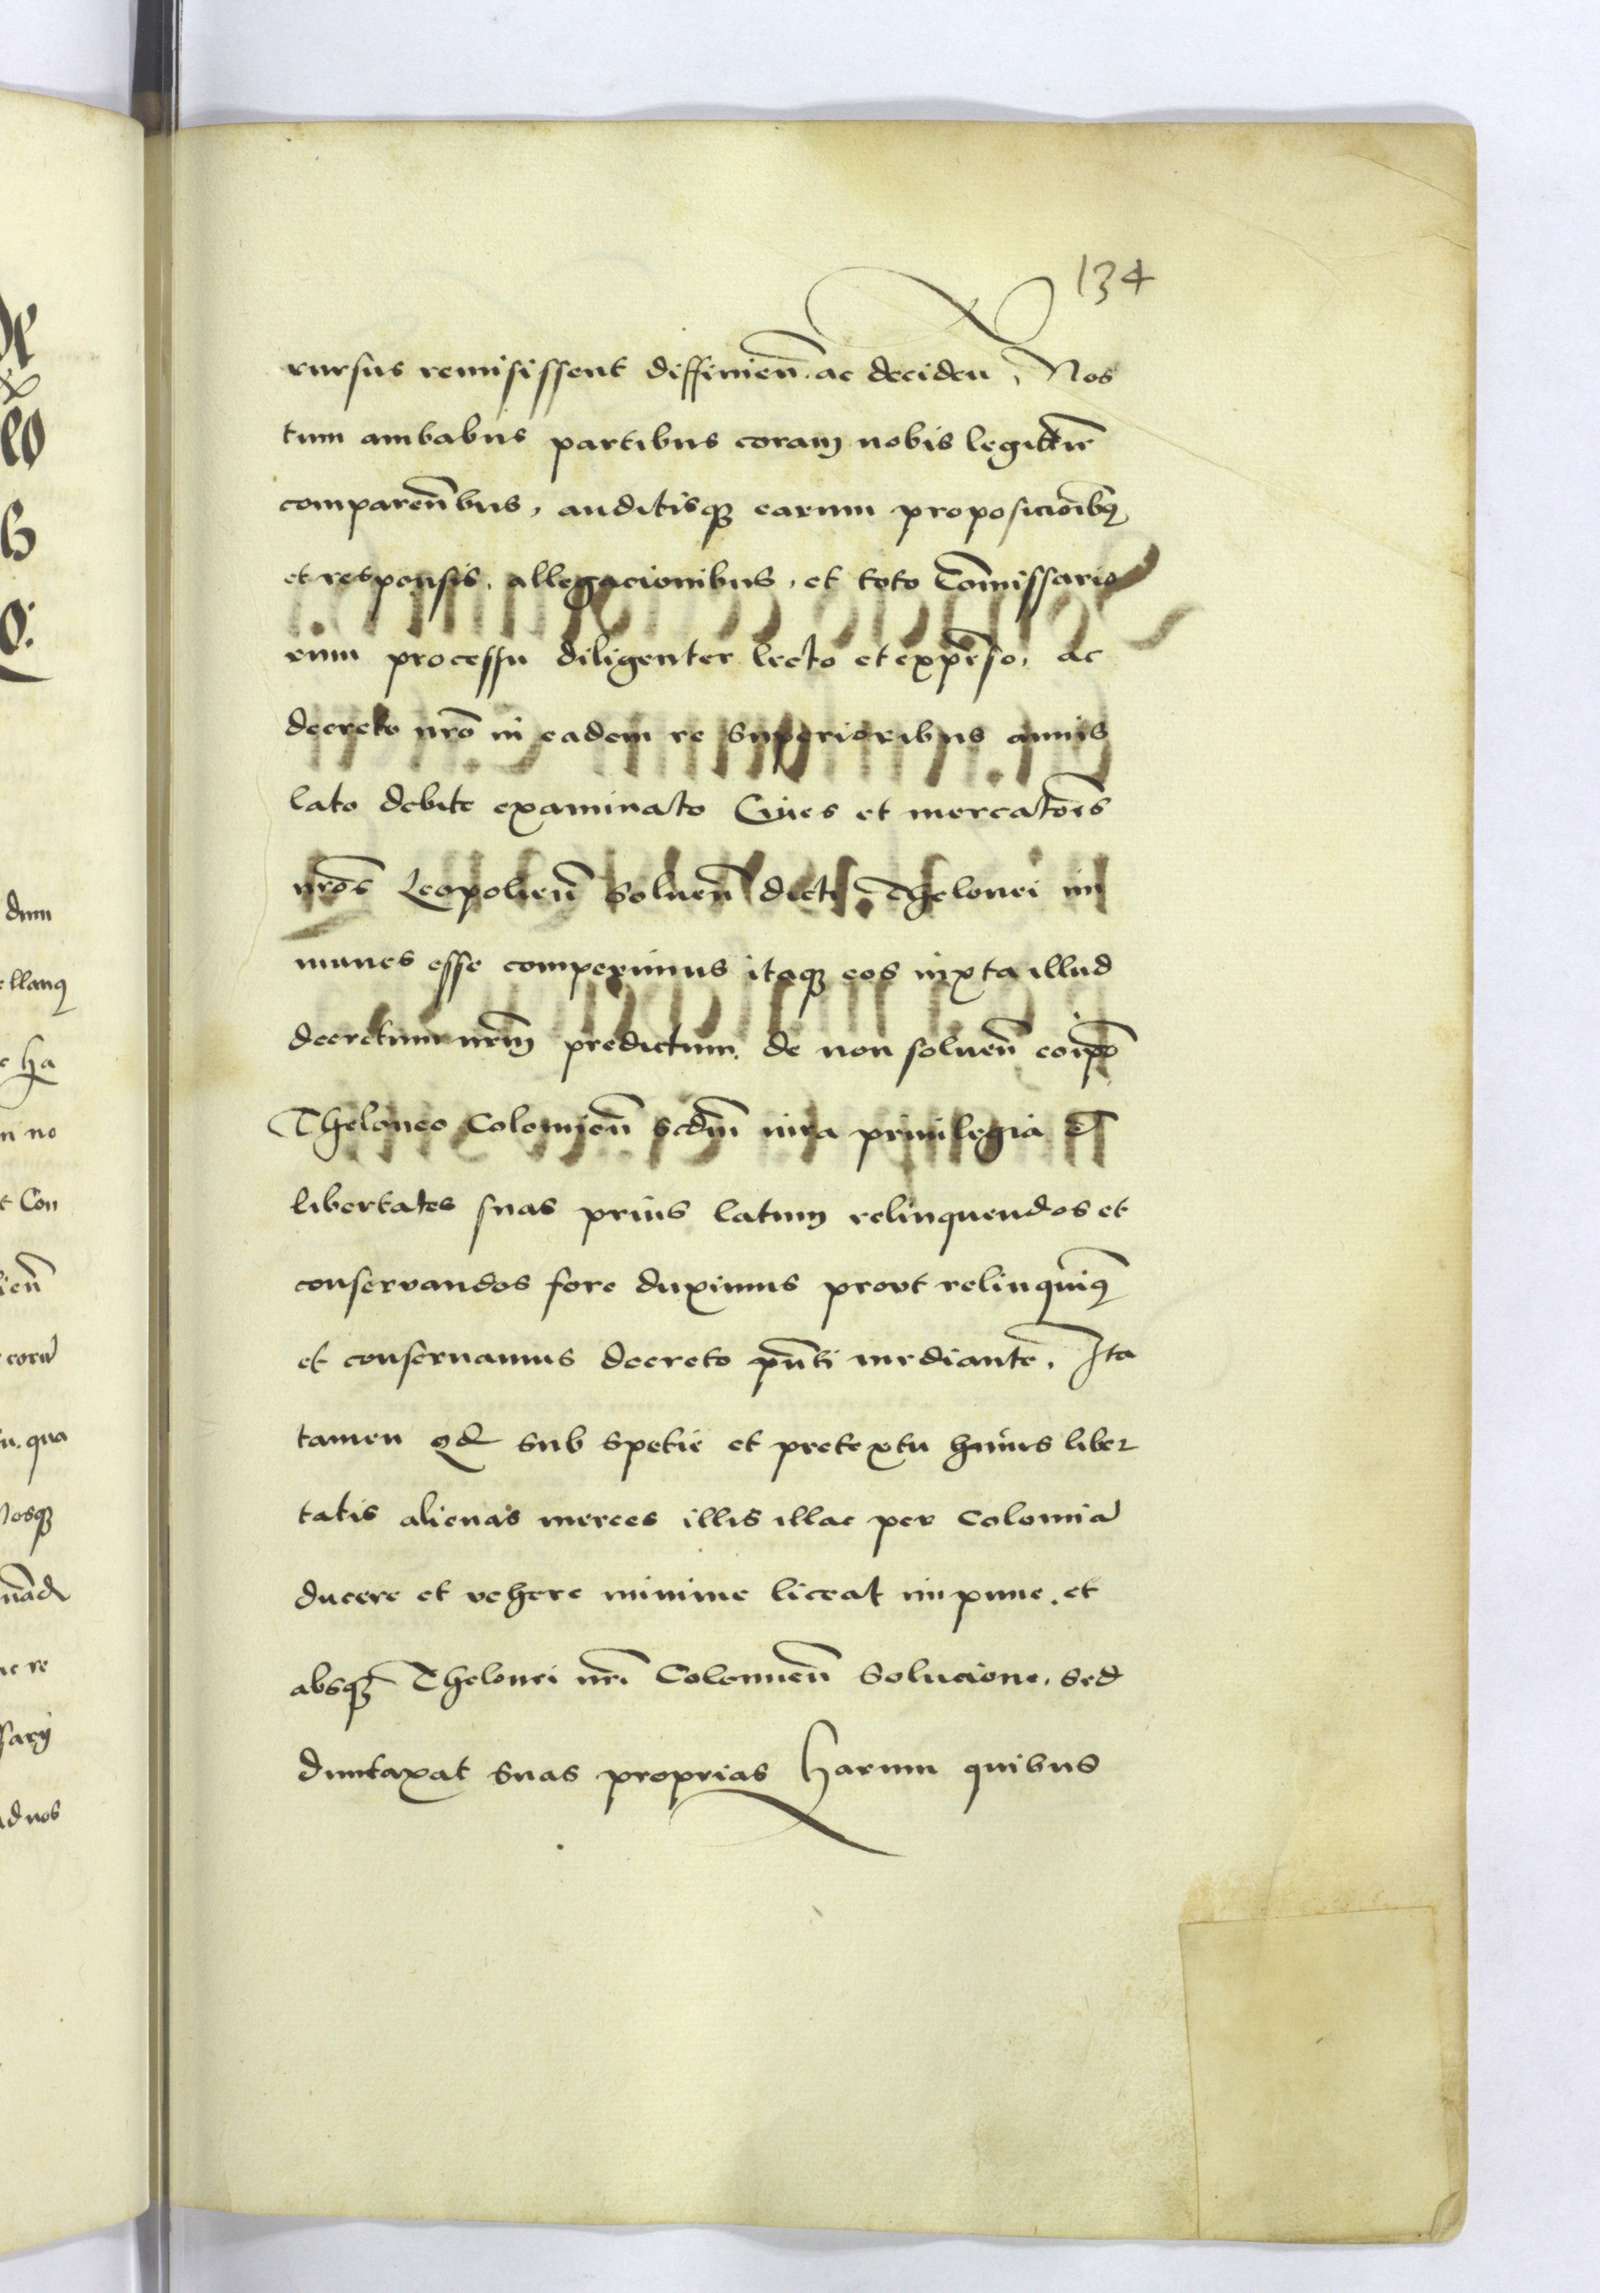 134
rursus remisissent diffinien̄. ac deciden, Nos
tum ambabus partibus coram nobis legittīē
comparen̄bus, auditisqꝫ earum proposicioībꝫ
et responsis, allegacionibus, et toto Com̄issario
rum processu diligenter lecto et expēso, ac
decreto nrō in eadem re superioribus annis
lato debite examinato Ciues et mercatōēs
nrōs Leopolien̄ Soluen̄ dicti Thelonei im
munes esse comperimus itaqꝫ eos iuxta illud
decretum nrm̄ predictum de non soluen̄ eoīpō
Theloneo Colomien̄ scdm̄ iura priuilegia et
libertates suas prius latum relinquendos et
conservandos fore duximus provt relinquīꝫ
et conseruamus decreto pn̄ti mediante, Ita
tamen qd sub spetie et pretextu huius liber
tatis alienas merces illis illac per Colomiā
ducere et vehere minime liceat impune, et
absqꝫ Thelonei nrī Colomien̄ Solucione, sed
duntaxat suas proprias Harum quibus
dum
ellanꝫ
ha
no
t Con
ien̄
qua
osqꝫ
re
sarij
ad nos